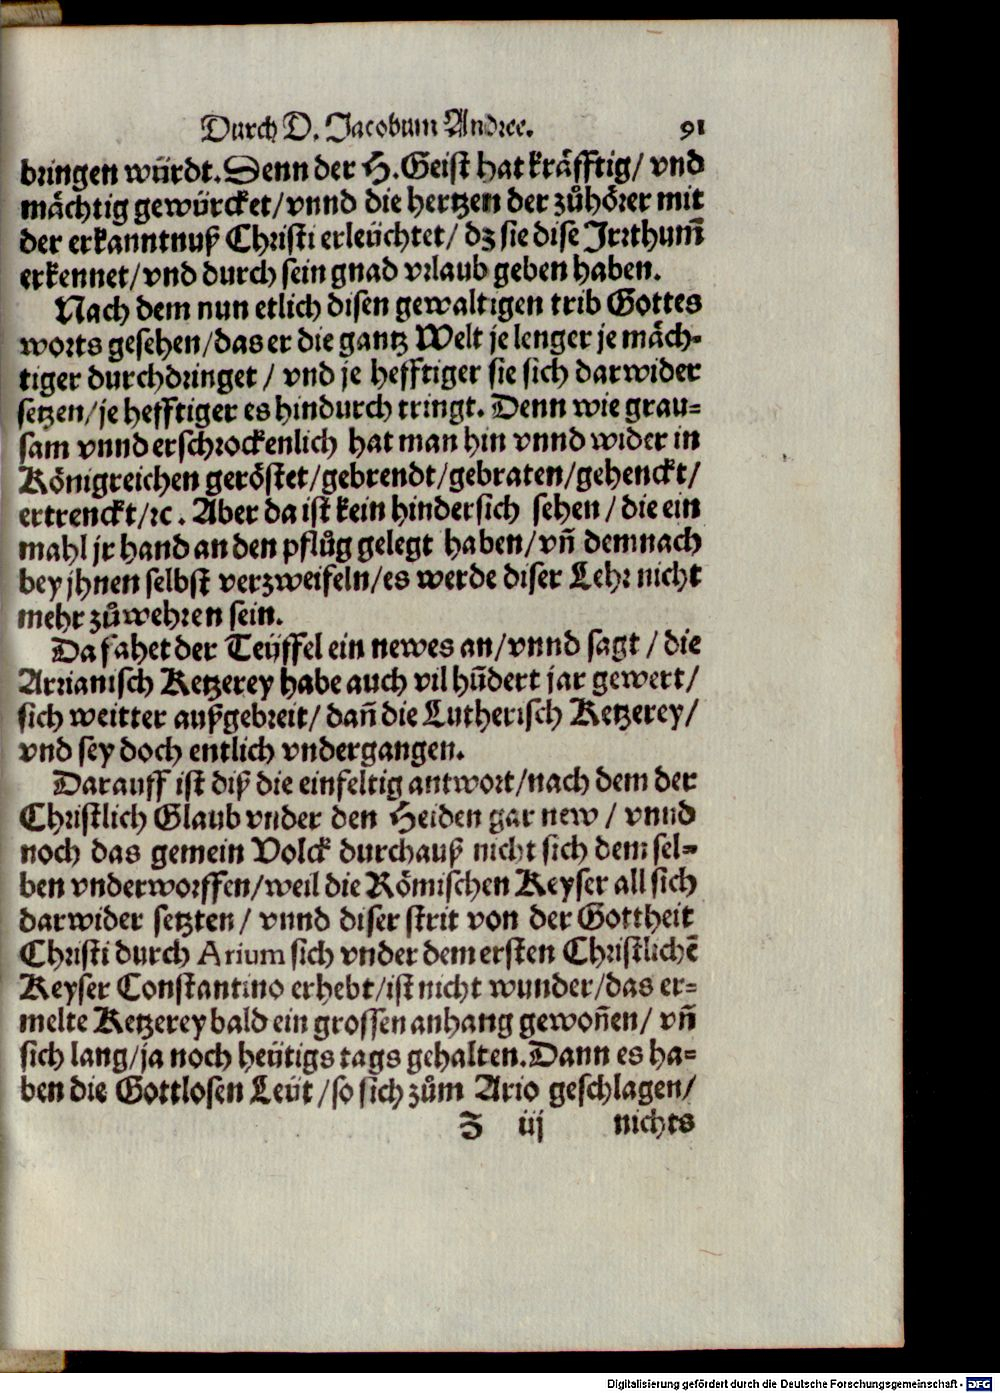 Durch D. Jacobum Andree. 91
bringen würdt. Denn der H. Geist hat kräfftig/ vnd
mächtig gewürcket/vnnd die hertzen der zůhörer mit
der erkanntnuß Christi erleüchtet/ dz sie dise Jrrthum̃
erkennet/vnd durch sein gnad vrlaub geben haben.
Nach dem nun etlich disen gewaltigen trib Gottes
worts gesehen/das er die gantz Welt je lenger je mäch-
tiger durchdringet / vnd je hefftiger sie sich darwider
setzen/je hefftiger es hindurch tringt. Denn wie grau-
sam vnnd erschrockenlich hat man hin vnnd wider in
Königreichen geröstet/gebrendt/gebraten/gehenckt/
ertrenckt/ꝛc. Aber da ist kein hindersich sehen / die ein
mahl jr hand an den pflůg gelegt haben/vñ demnach
bey jhnen selbst verzweifeln/es werde diser Lehr nicht
mehr zůwehren sein.
Da fahet der Teüffel ein newes an/vnnd sagt / die
Arrianisch Ketzerey habe auch vil hũdert jar gewert/
sich weitter außgebreit/ dañ die Lutherisch Ketzerey/
vnd sey doch entlich vndergangen.
Darauff ist diß die einfeltig antwort/nach dem der
Christlich Glaub vnder den Heiden gar new / vnnd
noch das gemein Volck durchauß nicht sich dem sel-
ben vnderworffen/weil die Römischen Keyser all sich
darwider setzten/ vnnd diser strit von der Gottheit
Christi durch Arium sich vnder dem ersten Christlichẽ
Keyser Constantino erhebt/ist nicht wunder/das er-
melte Ketzerey bald ein grossen anhang gewoñen/ vñ
sich lang/ja noch heütigs tags gehalten. Dann es ha-
ben die Gottlosen Leüt /so sich zům Ario geschlagen/
Z iij nichts
Digitalisierung gefördert durch die Deutsche Forschungsgemeinschaft - DFG